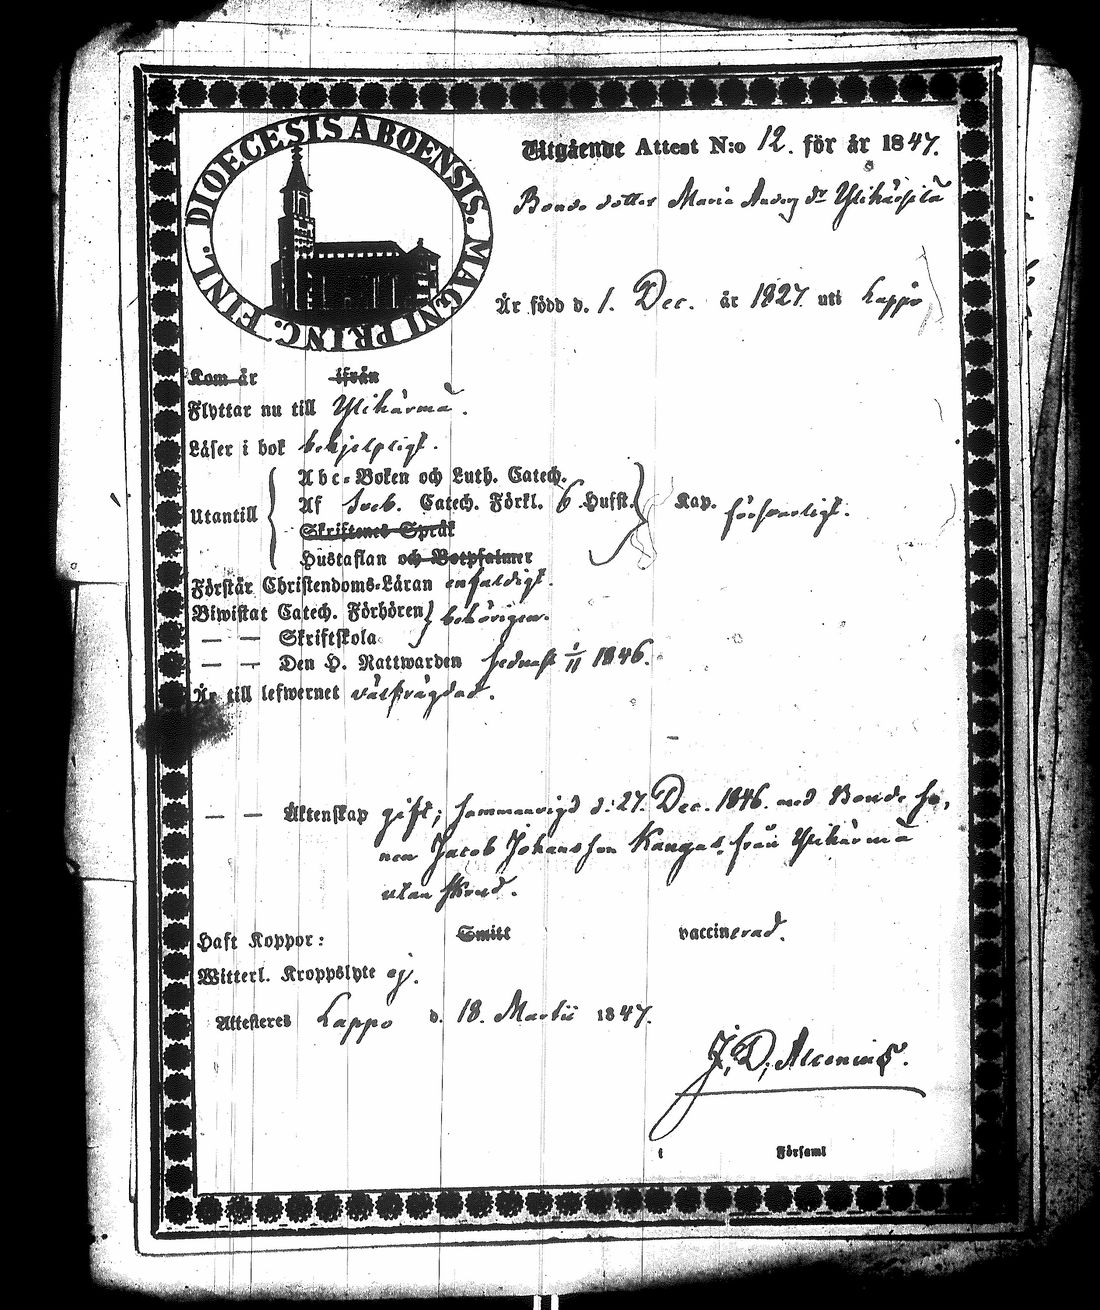 DIOECESIS ABOENSIS. MAGNI PRINC. FINL.
Utgående Attest N:o 12. för år 1847.
Bonde dotter Maria Anders dr
Är född d. 1. Dec. år 1827 uti Lappo
Kom år ifrån
Flyttar nu till Ylihärmä.
Läser i bok behjelpligt.
Utantill
Abc-Boken och Luth. Catech.
Af Sveb. Catech. Förkl. 6 Hufst. Kap. försvarligt.
Skriftenes Språk
Hustaflan och Botpsalmer
Förstår Christendoms-Läran enfaldigt.
Biwistat Catech. Förhören behörigen.
— — Skriftskola
— — Den H. Nattwarden sednast 1/11 1846.
Är till lefwernet välfrägdad.
— — Äktenskap gift; sammanvigd d. 27. Dec. 1846. med Bonde so,
nen Jacob Johansson Kangas från Ylihärmä
utan
Haft Koppor: Smitt vaccinerad.
Witterl. Kroppslyte ej.
Attesteres Lappo d. 18. Martii 1847.
J. D. Alcenius.
i Församl